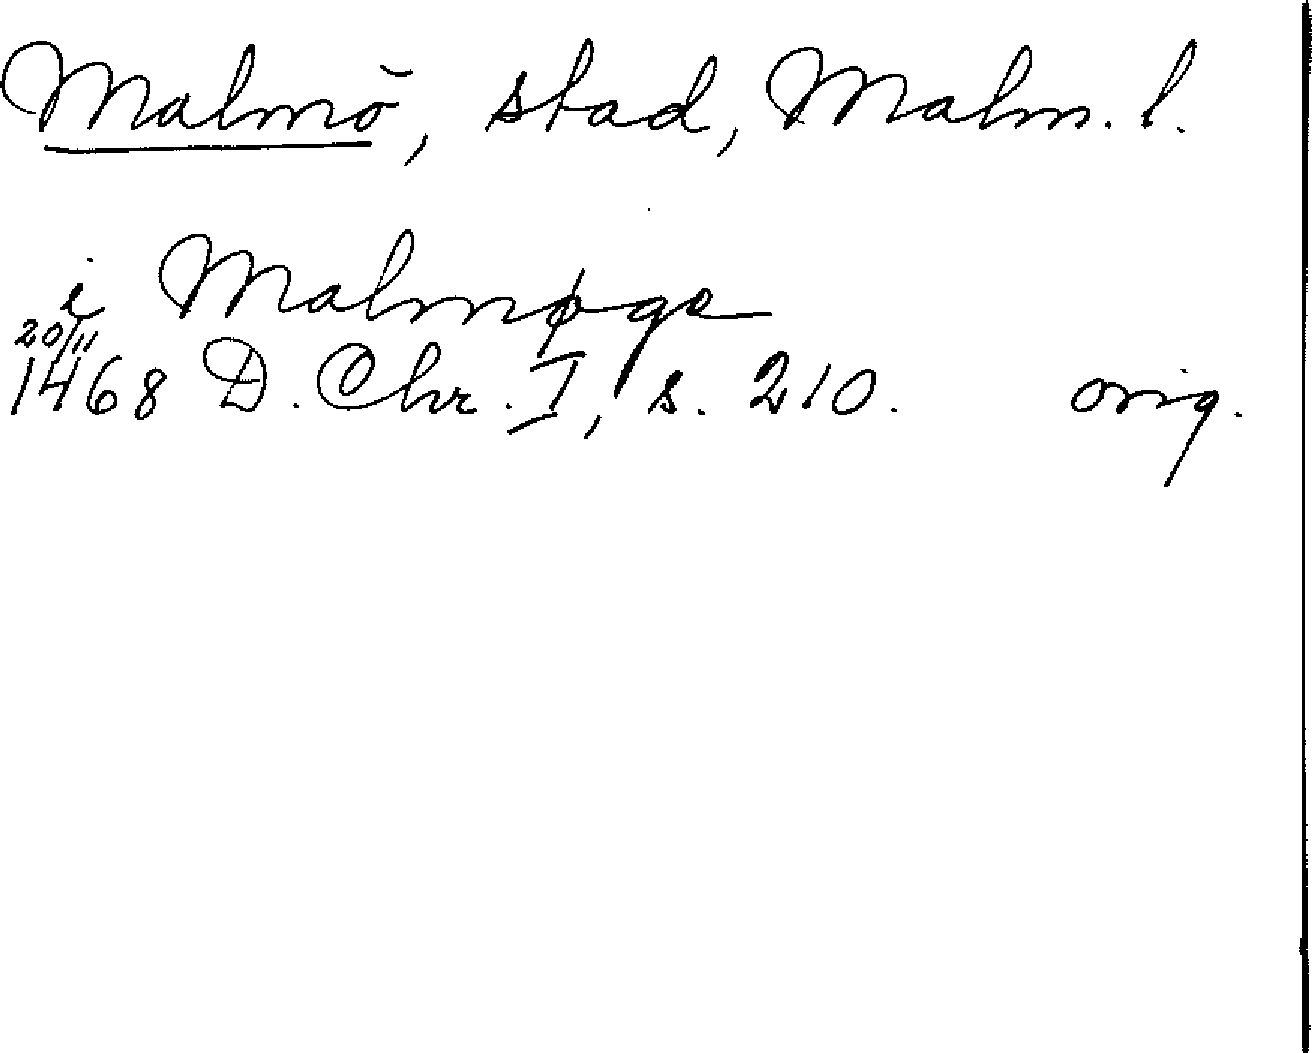 Malmö, stad, Malm. l.
i Malmøge
20/11
1468 D. Chr. I, s. 210. orig.